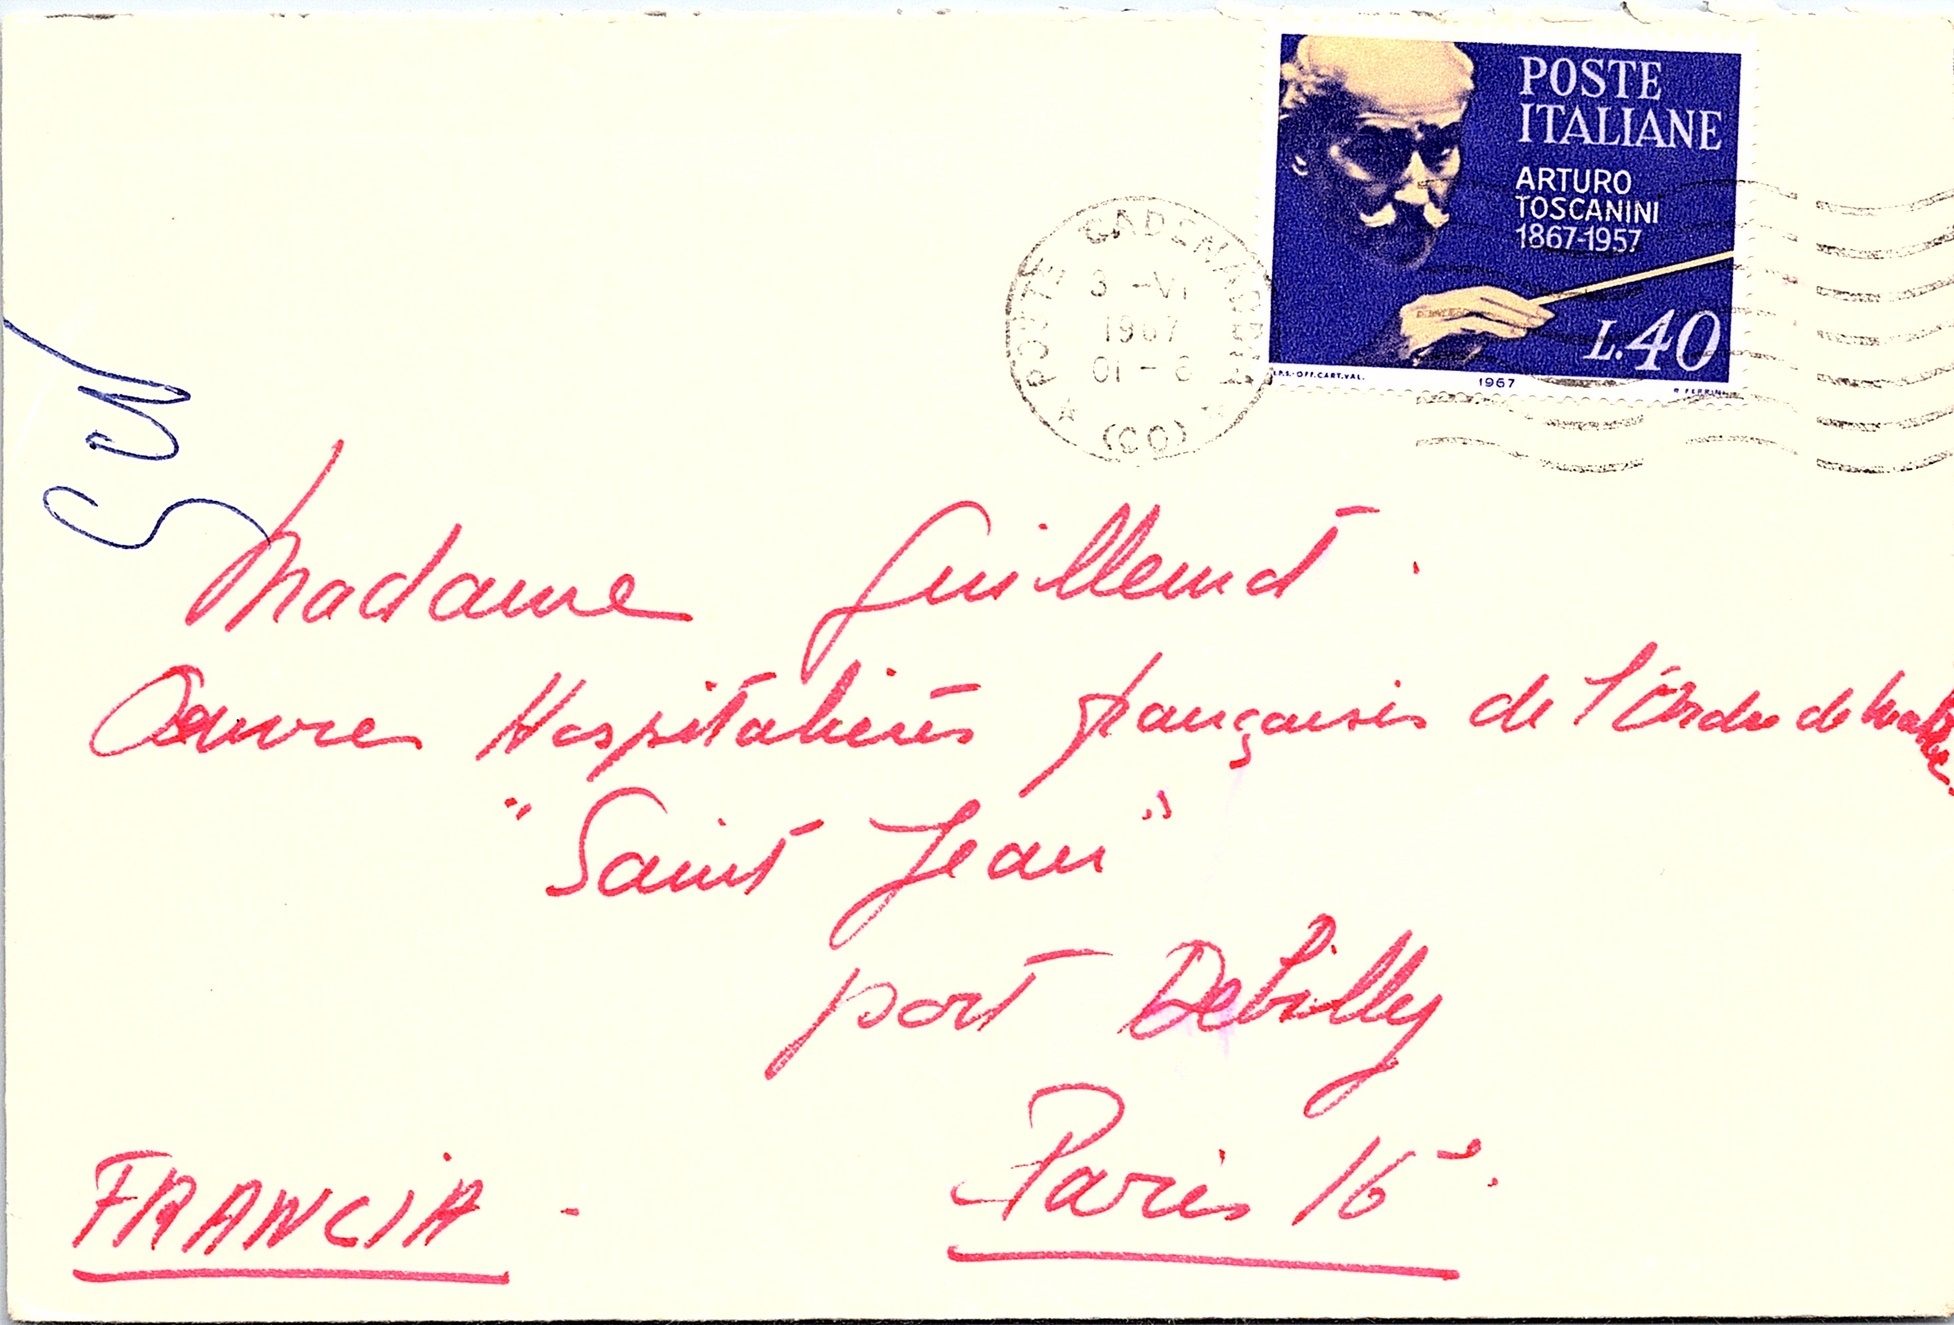 POSTE
ITALIANE
ARTURO
TOSCANINI
1867-1957
L.40
I.P.S.-OFF.CART.VAL. 1967 R. FERRINI
POSTE CADENABBIA
3 -VI
1967
01 - 8
(CO)
Madame Guillemot
Oeuvres Hospitalières françaises de l'Ordre de Malte
"Saint Jean"
port Debilly
Paris 16e.
FRANCIA -